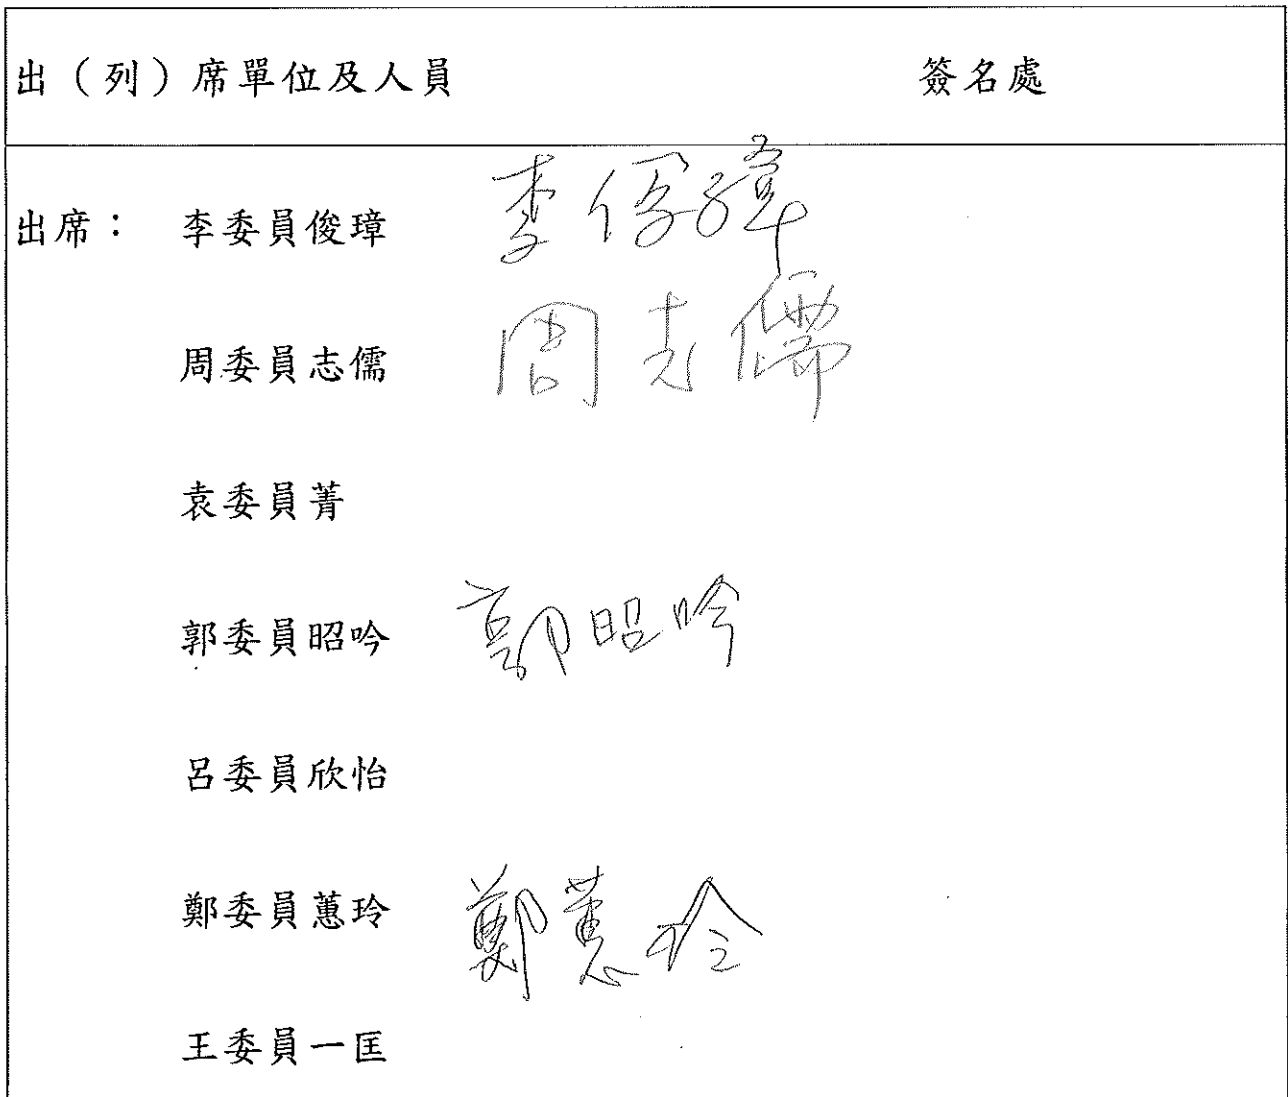 出（列）席單位及人員 簽名處
出席： 李委員俊璋 李俊璋
周委員志儒 周志儒
袁委員菁
郭委員昭吟 郭昭吟
呂委員欣怡
鄭委員蕙玲 鄭蕙玲
王委員一匡